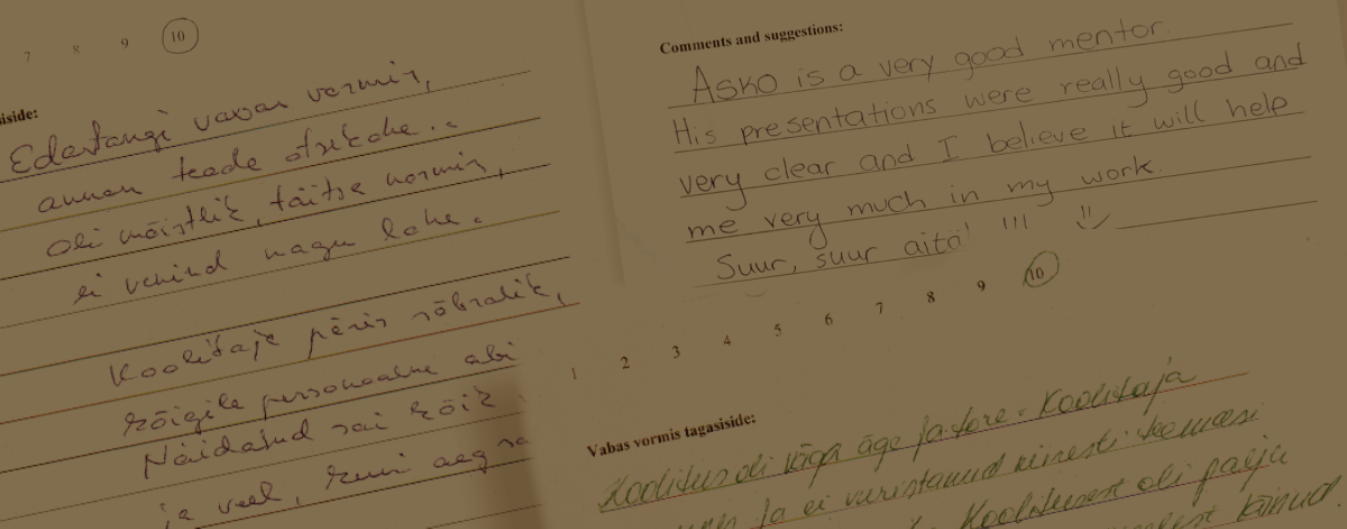 7 8 9 10
iside:
Edastangi vabas vormis,
annan teada otsekohe..
Oli mõistlik, täitsa normis,
ei venind nagu lohe.
Koolitaja päris sõbralik,
kõigile personaalne abi
Näidatud sai kõik
ja veel, kuni aeg sa
Comments and suggestions:
Asko is a very good mentor.
His presentations were really good and
very clear and I believe it will help
me very much in my work.
Suur, suur aitä! !!!
1 2 3 4 5 6 7 8 9 10
Vabas vormis tagasiside:
Koolitus oli väga äge ja tore. Koolitaja
ja ei
Koolitusest oli palju